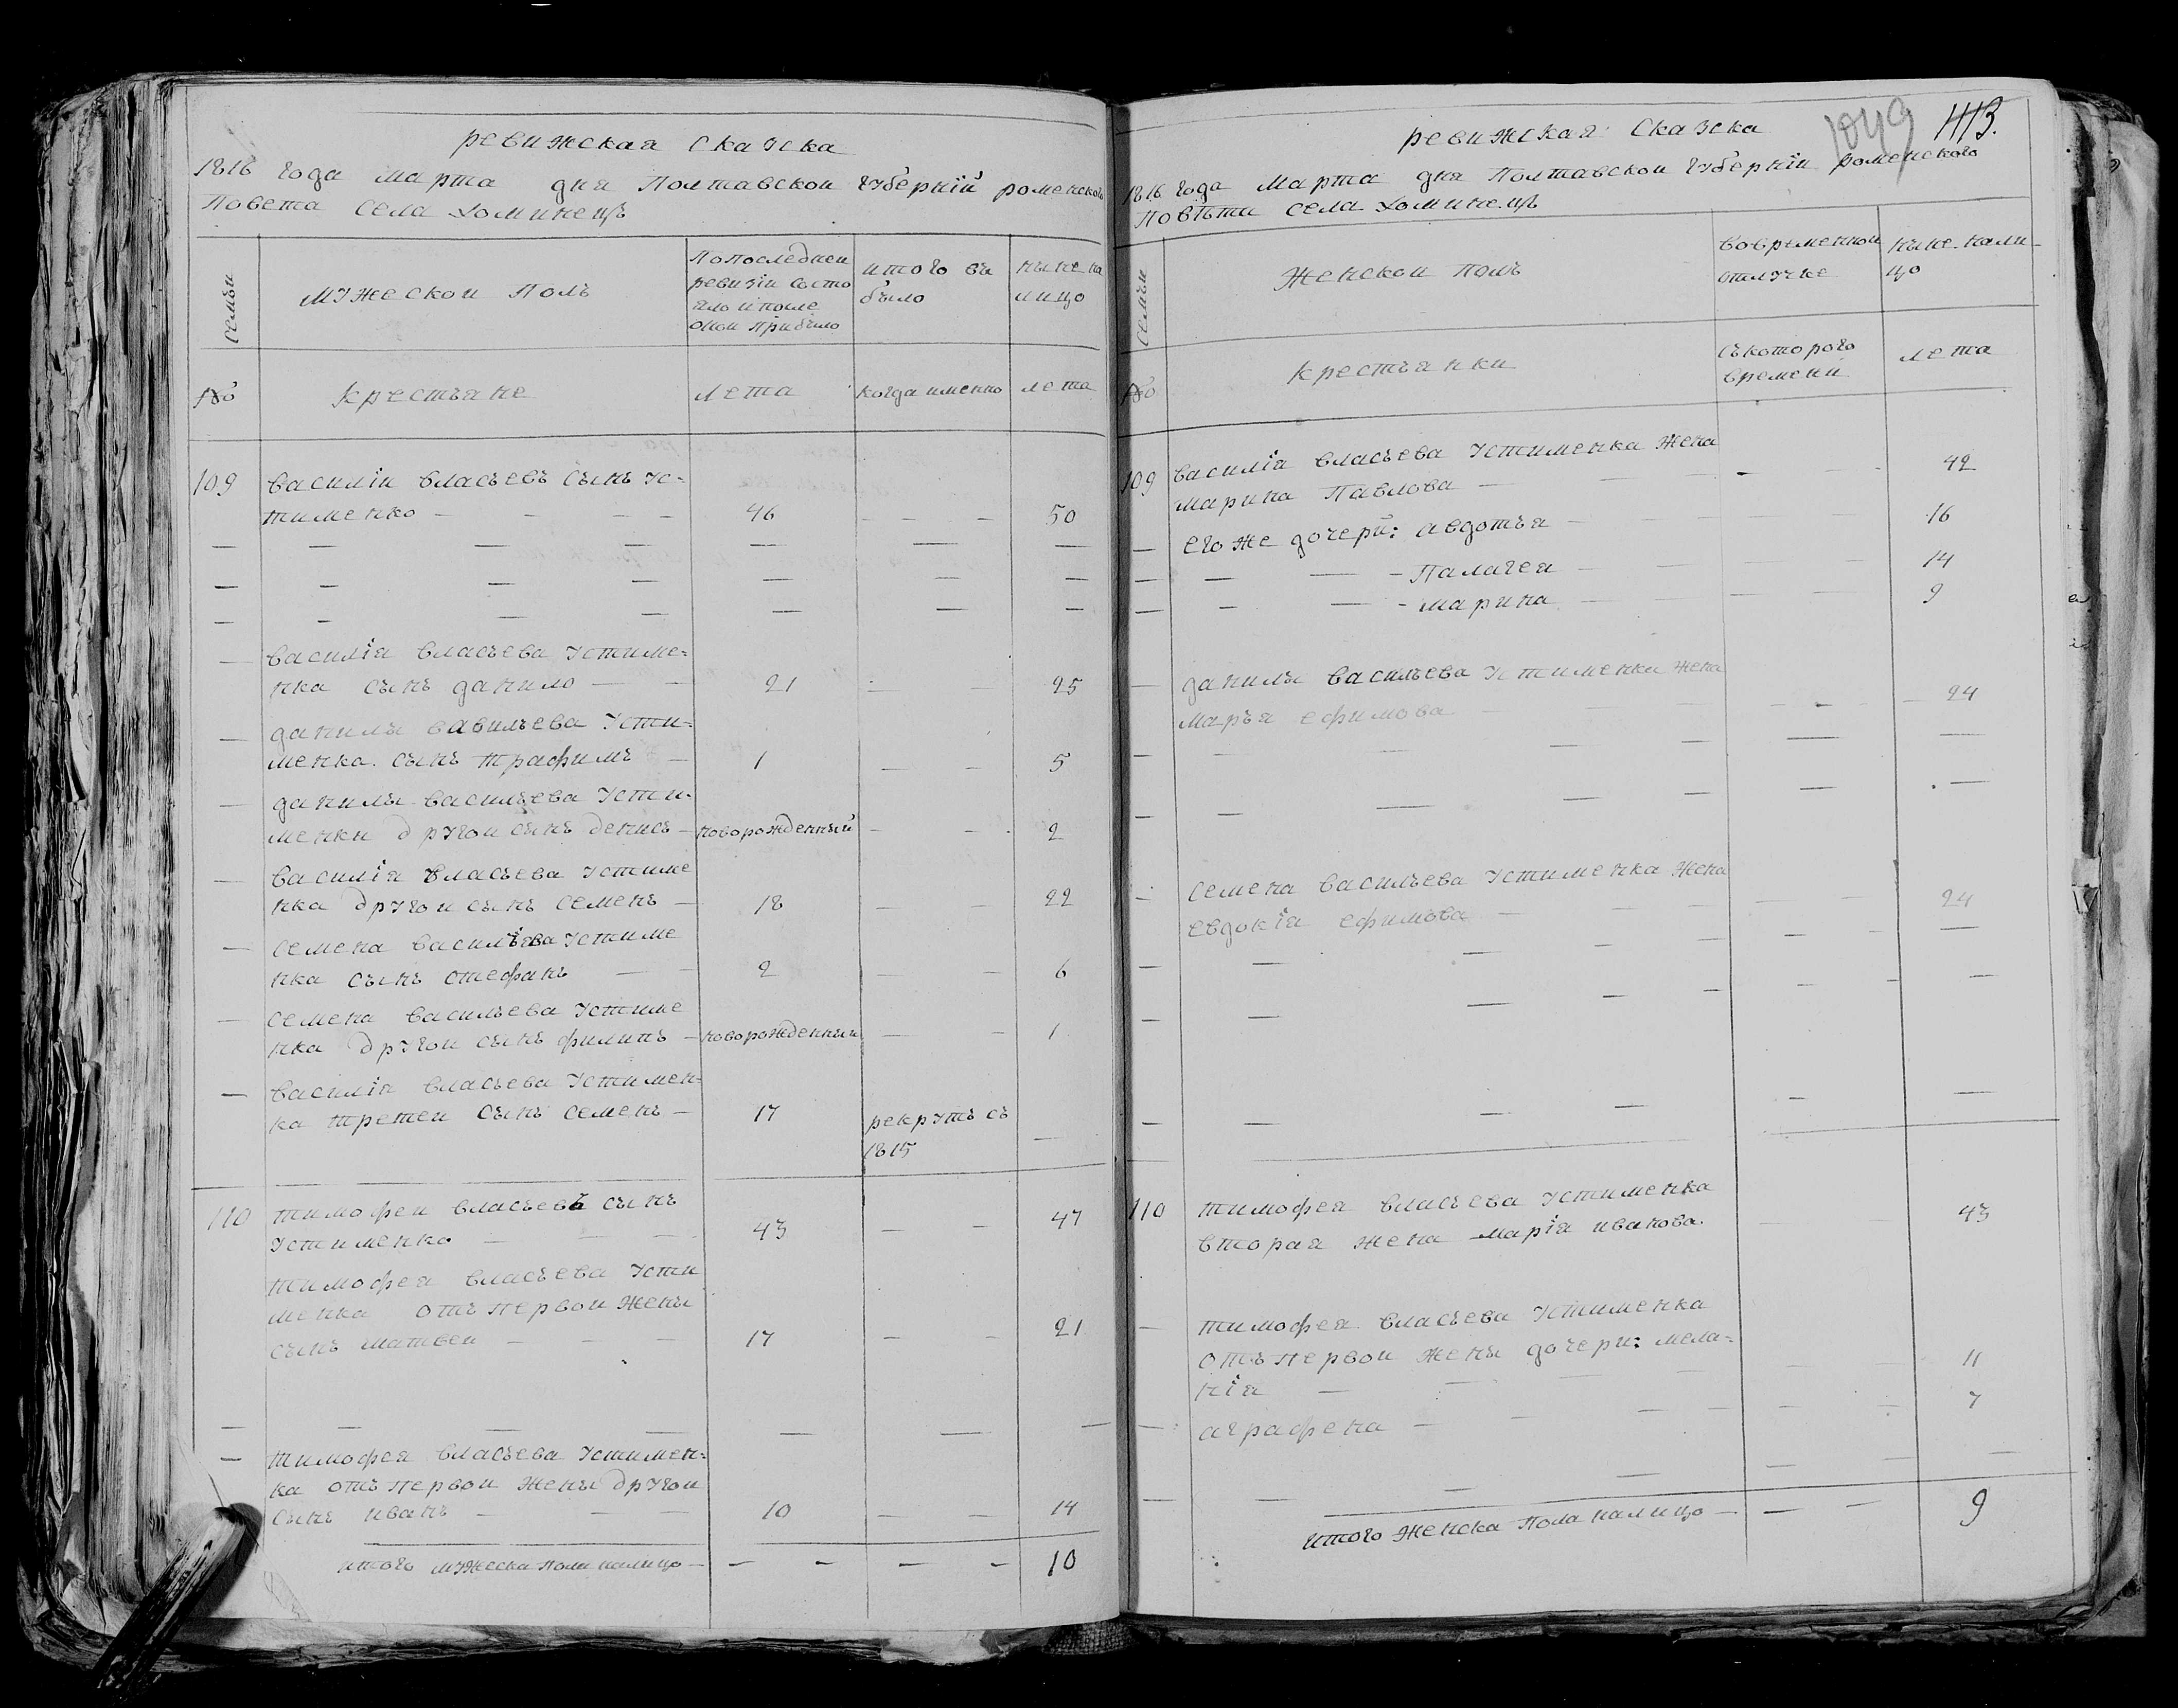 ревижская сказска
1816 Года марта дня Полтавскои Губерніи роменского
Повета села хоминецъ
семьи
мужескои Полъ
По последнеи
ревизіи состо
яло и после
онои прибыло
итого вы
было
ныне на
лицо
№
крестьяне
лета
когда именно
лета
109 василіи власьевъ сынъ ус-
тименко - 46 - 50
василія власьева устиме-
нка сынъ данило - 21 - 25
данилы васильева усти-
менка сынъ трафимъ - 1 - 5
данилы васильева усти-
менки другои сынъ денисъ - новорожденный - 2
василія власьева устиме
нка другои сынъ семенъ - 18 - 22
семена васильева устиме
нка сынъ стефанъ - 2 - 6
семена васильева устиме
нка другои сынъ филипъ - новорожденныи - 1
василія власьева устимен-
ка третеи сынъ семенъ - 17 рекрутъ съ
1815
110 тимофеи власьевъ сынъ
устименко - 43 - 47
тимофея власьева усти
менка отъ первои жены
сынъ матвеи - 17 - 21
тимофея власьева устимен-
ка отъ первои жены другои
сынъ иванъ - 10 - 14
итого мужеска пола налицо - 10
1049 413.
ревижская сказска
1816 года марта дня Полтавскои Губерніи роменского
Повѣта села хоминецъ
семьи
женскои полъ
вовременнои
отлучке
ныне нали-
цо
№
крестьянки
съкоторого
времени
лета
109 василія власьева устименка жена
марина Павлова - 42
его же дочери: авдотья - 16
- Палагея - 14
- марина - 9
данилы васильева устименка жена
марья ефимова - 24
семена васильева устименка жена
евдокія ефимова - 24
110 тимофея власьева устименка
вторая жена марія иванова. 43
тимофея власьева устименка
отъ первои жены дочери: мела-
нія - 11
аграфена - 7
итого женска пола налицо - 9